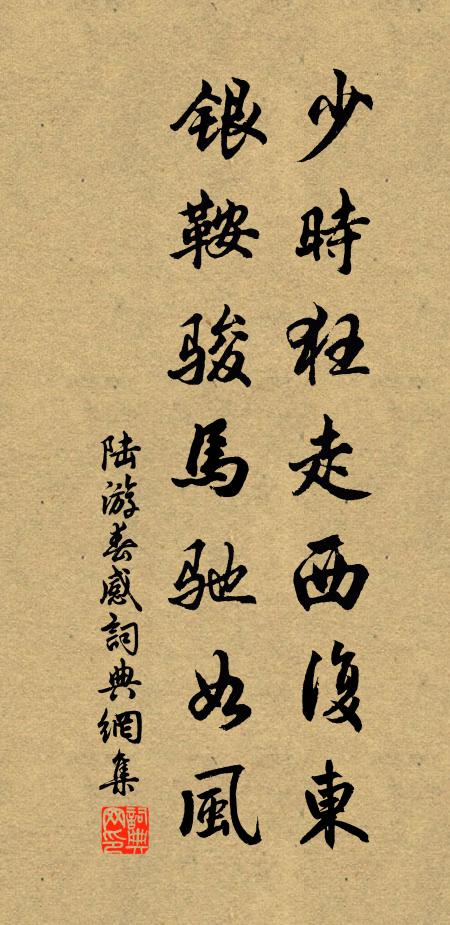 少時狂走西復東
銀鞍駿馬馳如風
陆游春感詞典網集
詞典网印